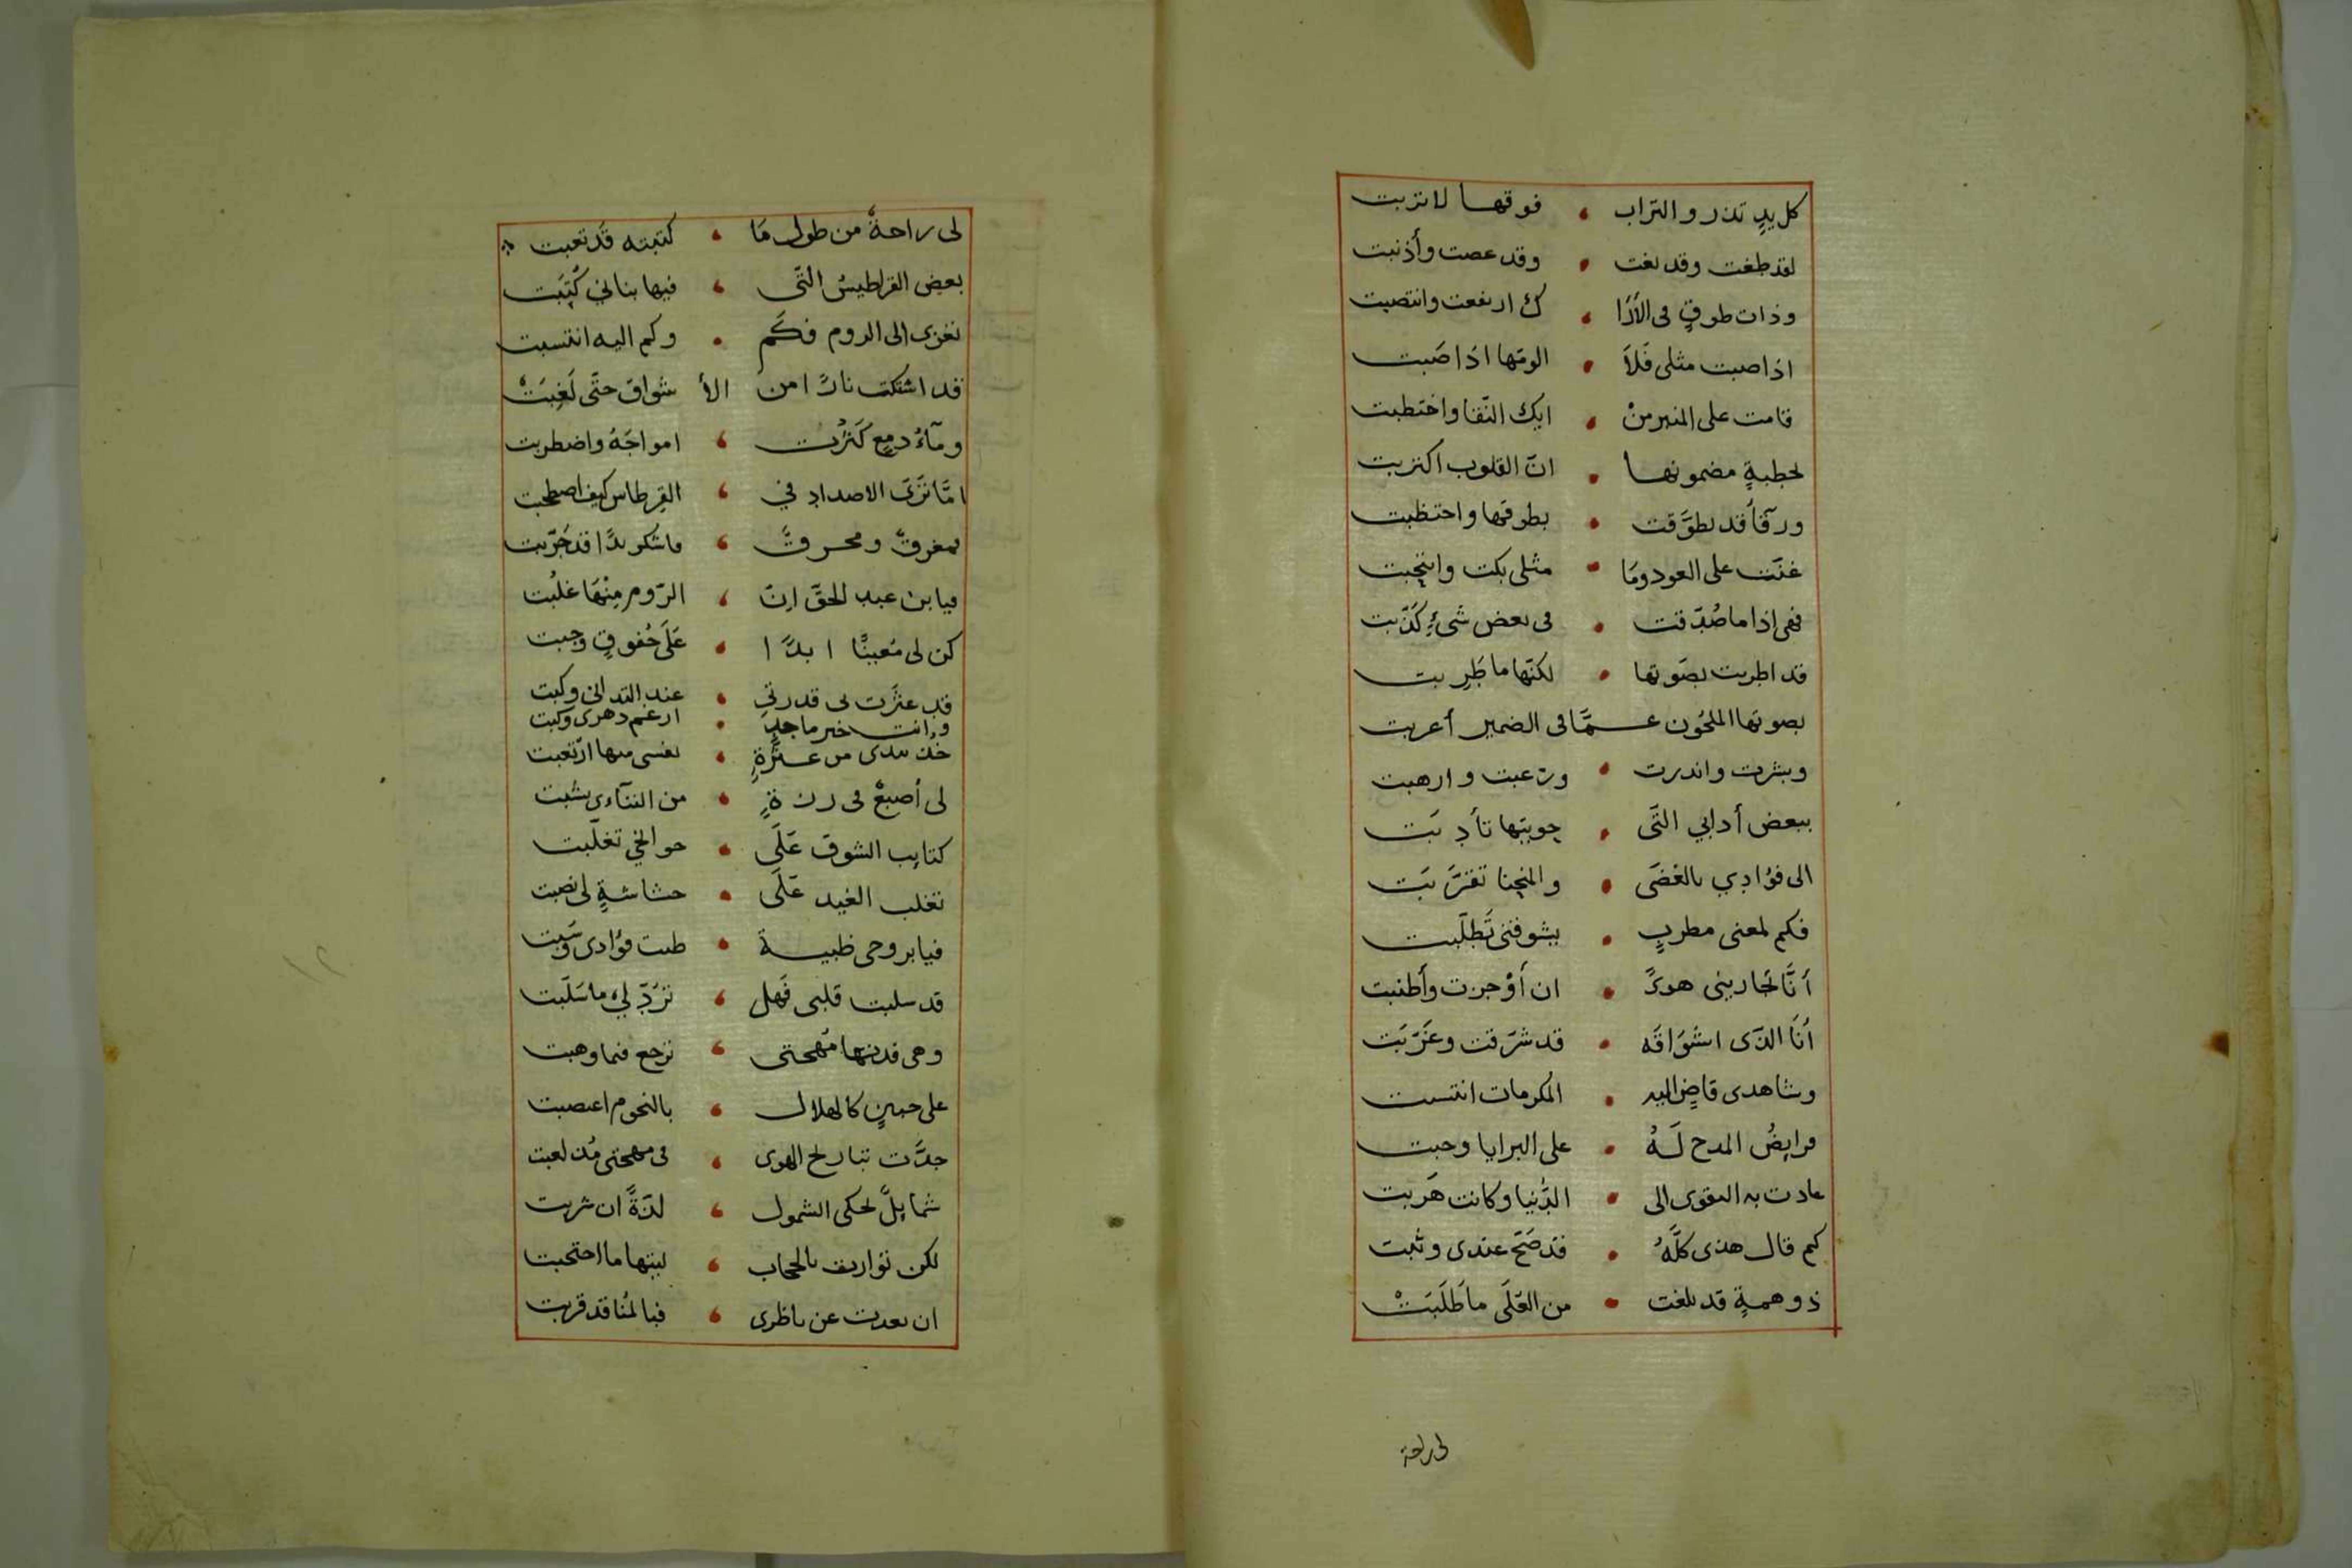 كل يدٍ تذر والتراب ، فوقها لا تربت
لقد طغت وقد بغت • وقد عصت وأذنبت
وذات طوقٍ فى الأرا ، ك ارتفعت وانتصبت
اذا صبت مثلى فَلاَ • الومها اذا صَبت
قامت على المنبر منْ • ايك النّقا واختطبت
بخطبةٍ مضمونها • انّ القلوب اكتربت
ورقآ قد تطوَّقت • بطوقها واختضبت
غنّت على العود ومَا • مثلى بكت وانتحبت
فهى اذا ما صُدّقت • فى بعض شىءٍ كذّبت
قد اطربت بصَوتها • لكنّها ما طَرِبت
بصوتها الملحُون عـمَّا فى الضمير أعربت
وبشرت واندرت • ورغبت وارهبت
ببعض أدابي التَّى • جوبتها تأدبَت
الى فؤادي بالغضَى • والمنحنا تقرَّبَت
فكم لمعنى مطربٍ • بشوفنى تَطلّبت
ان أَوْجزت وأَطنبت
أنَا الذّى اشوَاقَه • قد شرّقت وغَرّبَت
وشاهدى قاضٍ اليه • المكرمات انتسبت
فرايضُ المدح لَهُ • على البرايا وجبت
عادت به التقوى الى • الدُّنيا وكانت هَربت
كم قال هذى كلَّهُ • قد صَحّ عندى وثبت
ذو همةٍ قد بلغت • من العُلَى ما طَلَبَتْ
لى راحة
لى راحةٌ من طول مَا • كتبته قَد تعبت
بعض القراطيسُ التّى ، فيها بناني كُتِبَت
تغزى الى الروم فكَم • وكم اليه انتسبت
قد اشتكت نارًا من الأ شواق حتّى لَغِبَتْ
ومآءُ دمعٍ كَثُرت ، امواجَهُ واضطربت
امَّا تَرَىَ الاضداد في ، القِرطاس كيف اصطحبت
فمغرقٌ ومحرقٌ ، فاشكو يدًا قد جَرّبت
فيا بن عبد الحقّ اِنّ ، الرّوم مِنْهَا غلُبت
كن لى مُعينًا ابدًا • عَلَى حُقوقٍ وجبت
قد عثَرت لى قدرتي • عند التدانى وكبت
وانت خير ماجدٍ • ارغم دهرى وكبت
خذ بيدى من عثرةٍ • نفسى منها ارتعبت
لى أصبعٌ فى رزةٍ • من التنآءى نشبت
كتايب الشوق عَلَى • جوانحي تغلّبت
تغلب الغيد عَلَى • حشاشةٍ لى نصبت
فيا بروحى ظبيـة • طبت فؤادى وسَبت
قد سلبت قلبى فَهل ، تَرُدّ لي ما سَلَبت
وهى فديتها مُهجتى ، ترجع فيما وهبت
على جبينٍ كالهلال ، بالنجوم اعتصبت
جدَّت تباريح الهوى ، فى مهجتى مُذ لعبت
شمايلٌ تحكى الشمول ، لذةً ان شربت
لكن توارت بالحجاب ، ليتها ما احتجبت
ان بعدت عن ناظرى ، فبالمُنا قد قربت
١٢